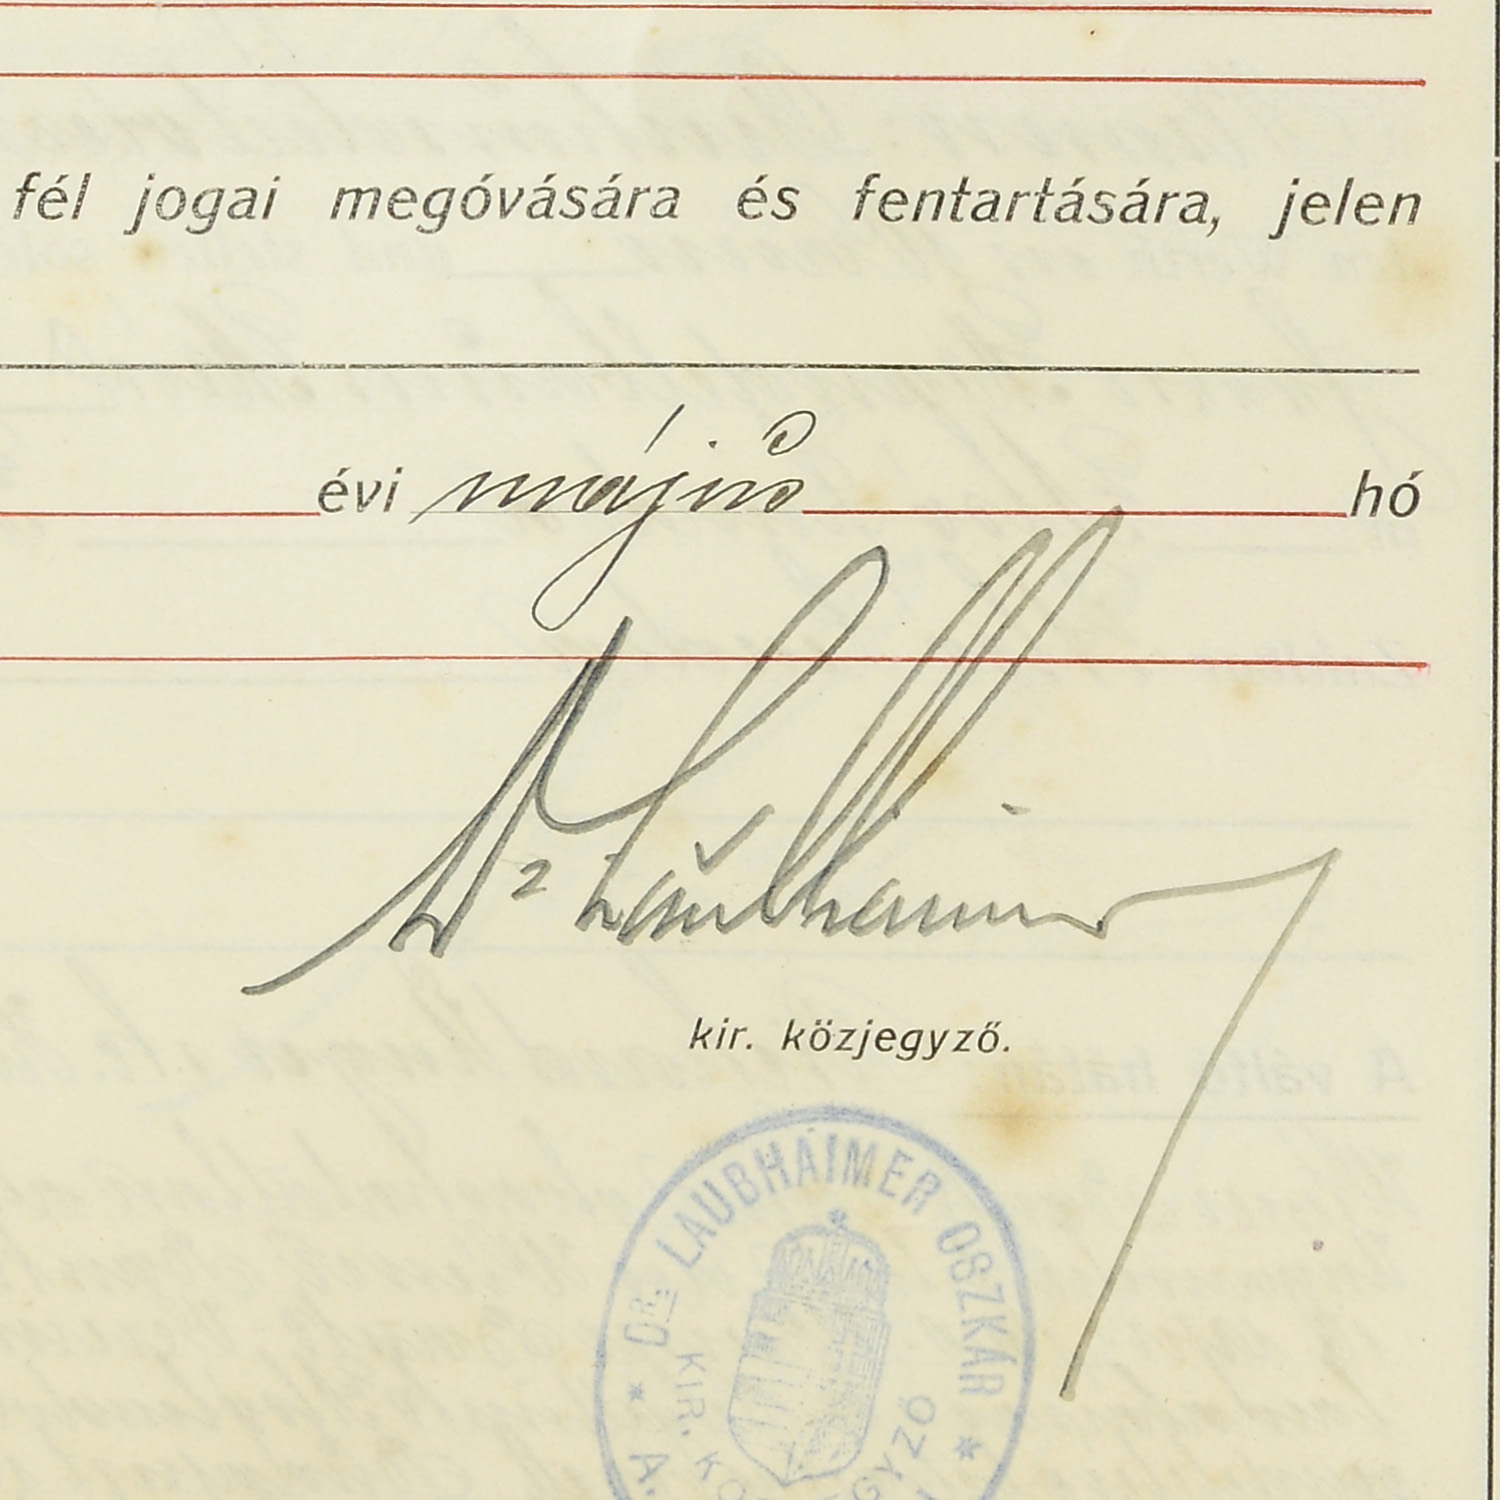 fél jogai megóvására és fentartására, jelen
évi május hó
Dr Laubhaimer
kir. közjegyző.
DR. LAUBHAIMER OSZKÁR
KIR.